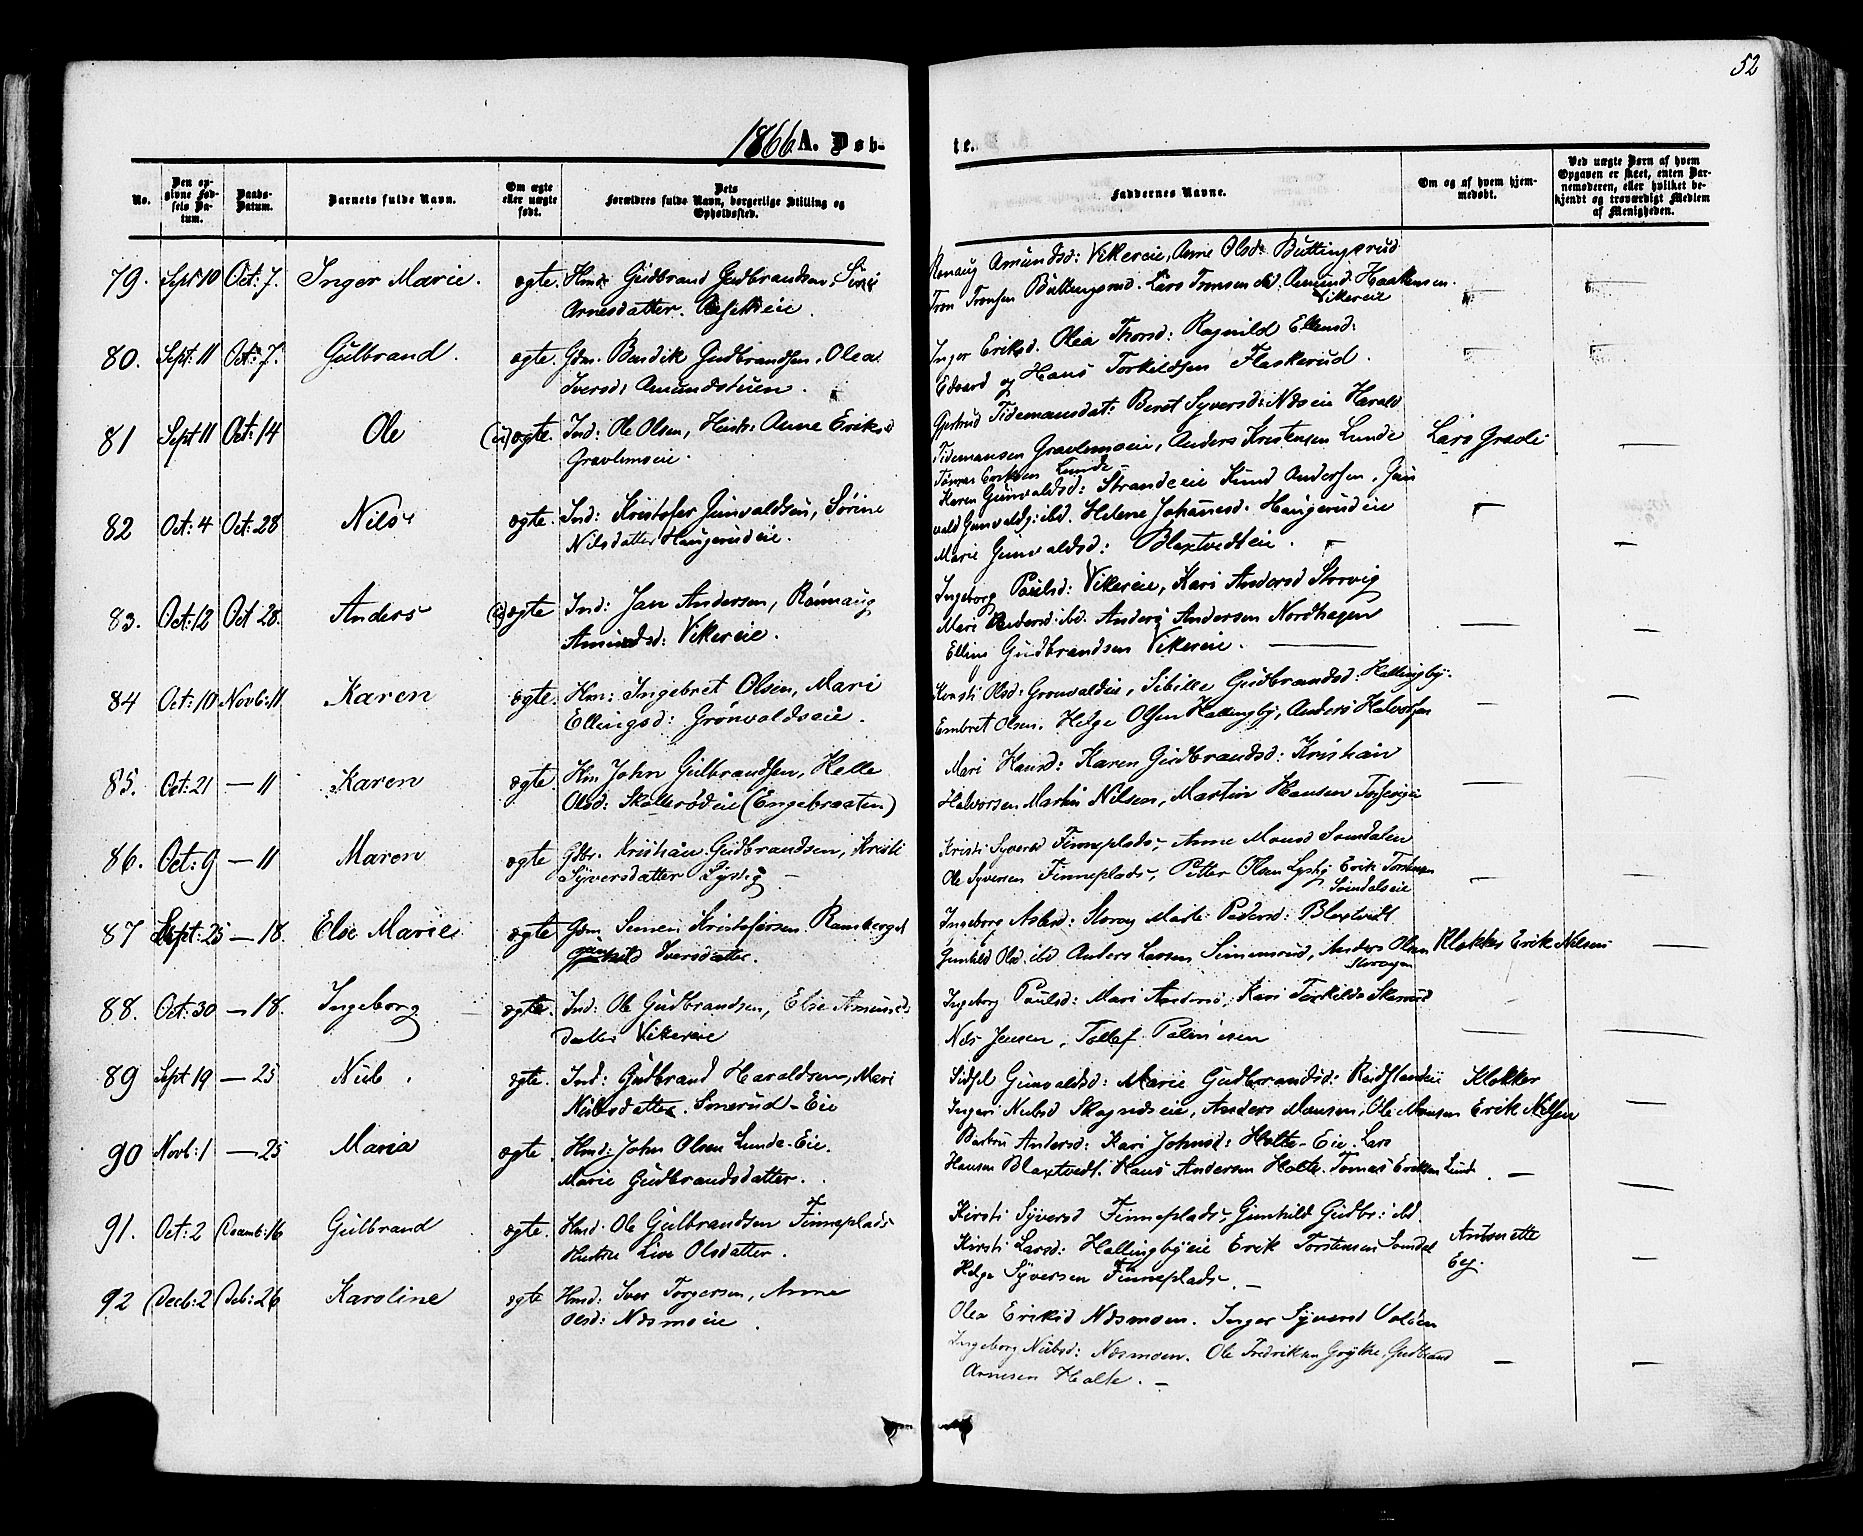 52
1866 A. Døb-
te.
No.
Den op-
givne Fød-
sels Da-
tum.
Daabs-
Datum.
Barnets fulde Navn.
Om ægte
eller uægte
født.
Dets
Forældres fulde Navn, borgerlige Stilling og
Opholdssted.
Faddernes Navne.
Om og af hvem hjem-
medøbt.
Ved uægte Børn af hvem
Opgaven er skeet, enten Bar-
nemoderen, eller hvilket be-
kjendt og troværdigt Medlem
af Menigheden.
79. Sept 10 Oct: 7. Inger Marie. ægte. Hmd Gudbrand Gudbrandsen, Siri
Arnesdatter.
Amundsd: Vikereie, Anne Olsd: Buttingsrud
Tron Tronsen Buttingsrud. Lars Tronsen ibd. Amund Haakensen
Vikereie
80. Sept: 11 Oct: 7. Gulbrand. ægte. Gdm. Bardik Gudbrandsen, Olea
Iversd: Amundstuen.
Inger Eriksd. Olea Thorsd: Ragnild Ellensd:
Edvard og Hans Torkildsen Flaskerud.
81 Sept 11 Oct: 14 Ole ægte. Ind: Ole Olsen, Hust: Anne Eriksd
Gravlimoeie.
Gjertrud Tidemansdat: Beret Syversd: Næseie Harald
Tidemansen Gravlimoeie, Anders Kristensen Lunde
Tomas Eriksen Lunde
Lars Grøde
82 Oct: 4 Oct: 28 Nils ægte. Ind: Kristofer Gunvaldsen, Sørine
Nilsdatter Haugerudeie.
Karen Gunvaldsd: Strandeie Knud Andersen, Gun
vald Gunvalds: ibd. Helene Johansd. Haugerudeie
Marie Gunvaldsd: Blaxtvedteie.
83. Oct: 12 Oct 28. Anders ægte Ind: Jan Andersen, Rønnaug
Amundsd: Vikereie.
Ingeborg Paulsd: Vikereie, Kari Andersd Storvig
Mari Pedersd: ibd. Anders Andersen Nordhagen
Elling Gudbrandsen Vikereie.
84 Oct: 10 Novb: 11 Karen ægte. Hm: Ingebret Olsen, Mari
Ellingsd: Grønvoldseie.
Kirsti Olsd: Grønvoldeie, Sibille Gudbrandsd: Hallingby.
Embret Olsen. Helge Olsen Hallingby, Anders Halvorsen
85. Oct: 21 — 11 Karen ægte. Hm John Gulbrandsen, Helle
Olsd: Skollerødeie (Engebraaten)
Mari Hansd: Karen Gudbrandsd: Kristian
Halvorsen Martin Nilsen, Martin Hansen
86. Oct: 9 — 11 Maren ægte Gdbr. Kristian Gudbrandsen, Kristi
Syversdatter Lyshg
Kristi Syversd Finneplads, Anne Monsd Somdalen
Ole Syversen Finneplads, Petter Olsen Lyshg Erik Torstensen
Somdalseie
87 Sept: 25 — 18. Else Marie ægte Gdm. Simen Kristofersen Ramberget
Gunhild Iversdatter.
Ingeborg Aslesd: Storøy Marte Pedersd: Blaxtvedt
Gunhild Olsd ibd Anders Larsen Simensrud, Anders Olsen
Storøyen
Klokker Erik Nilsen
88. Oct: 30 — 18. Ingeborg ægte. Ind: Ole Gudbrandsen, Else Amunds
datter Vikereie
Ingeborg Paulsd: Mari Andersd: Kari Torkildsd Skarud
Nils Jensen, Tollef Palmesen
89 Sept 19 — 25 Niels. ægte. Ind: Gudbrand Haraldsen, Mari
Nielsdatter. Sonerud-Eie
Sidsel Gunvaldsd: Marie Gudbrandsd:
Ingeri Nielsd Skagnæseie, Anders Monsen, Ole Monsen
Klokker
Erik Nilsen
90 Novb: 1 — 25 Maria ægte. Hmd: John Olsen Lunde-Eie.
Marie Gudbrandsdatter.
Barbru Andersd: Kari Johnsd: Holte-Eie. Lars
Hansen Blaxtvedt, Hans Andersen Holte. Tomas Eriksen Lunde
91. Oct: 2 Decemb: 16 Gulbrand ægte. Hmd. Ole Gulbrandsen Finneplads
Hustru Live Olsdatter.
Kirsti Syversd Finneplads, Gunhild Gudbr: ibd.
Kirsti Larsd: Hallingbyeie Erik Torstensen Somdal
Helge Syversen Finneplads.
Antonette
Eeg.
92 Decb: 2 Deb: 26 Karoline ægte Hmd: Iver Torgersen, Anne
Olsd: Næsmoeie
Olea Eriksd Næsmoen. Inger Syversd Volden
Ingeborg Nielsd: Næsmoen. Ole Fredriksen Grytte, Gudbrand
Arnesen Holte.